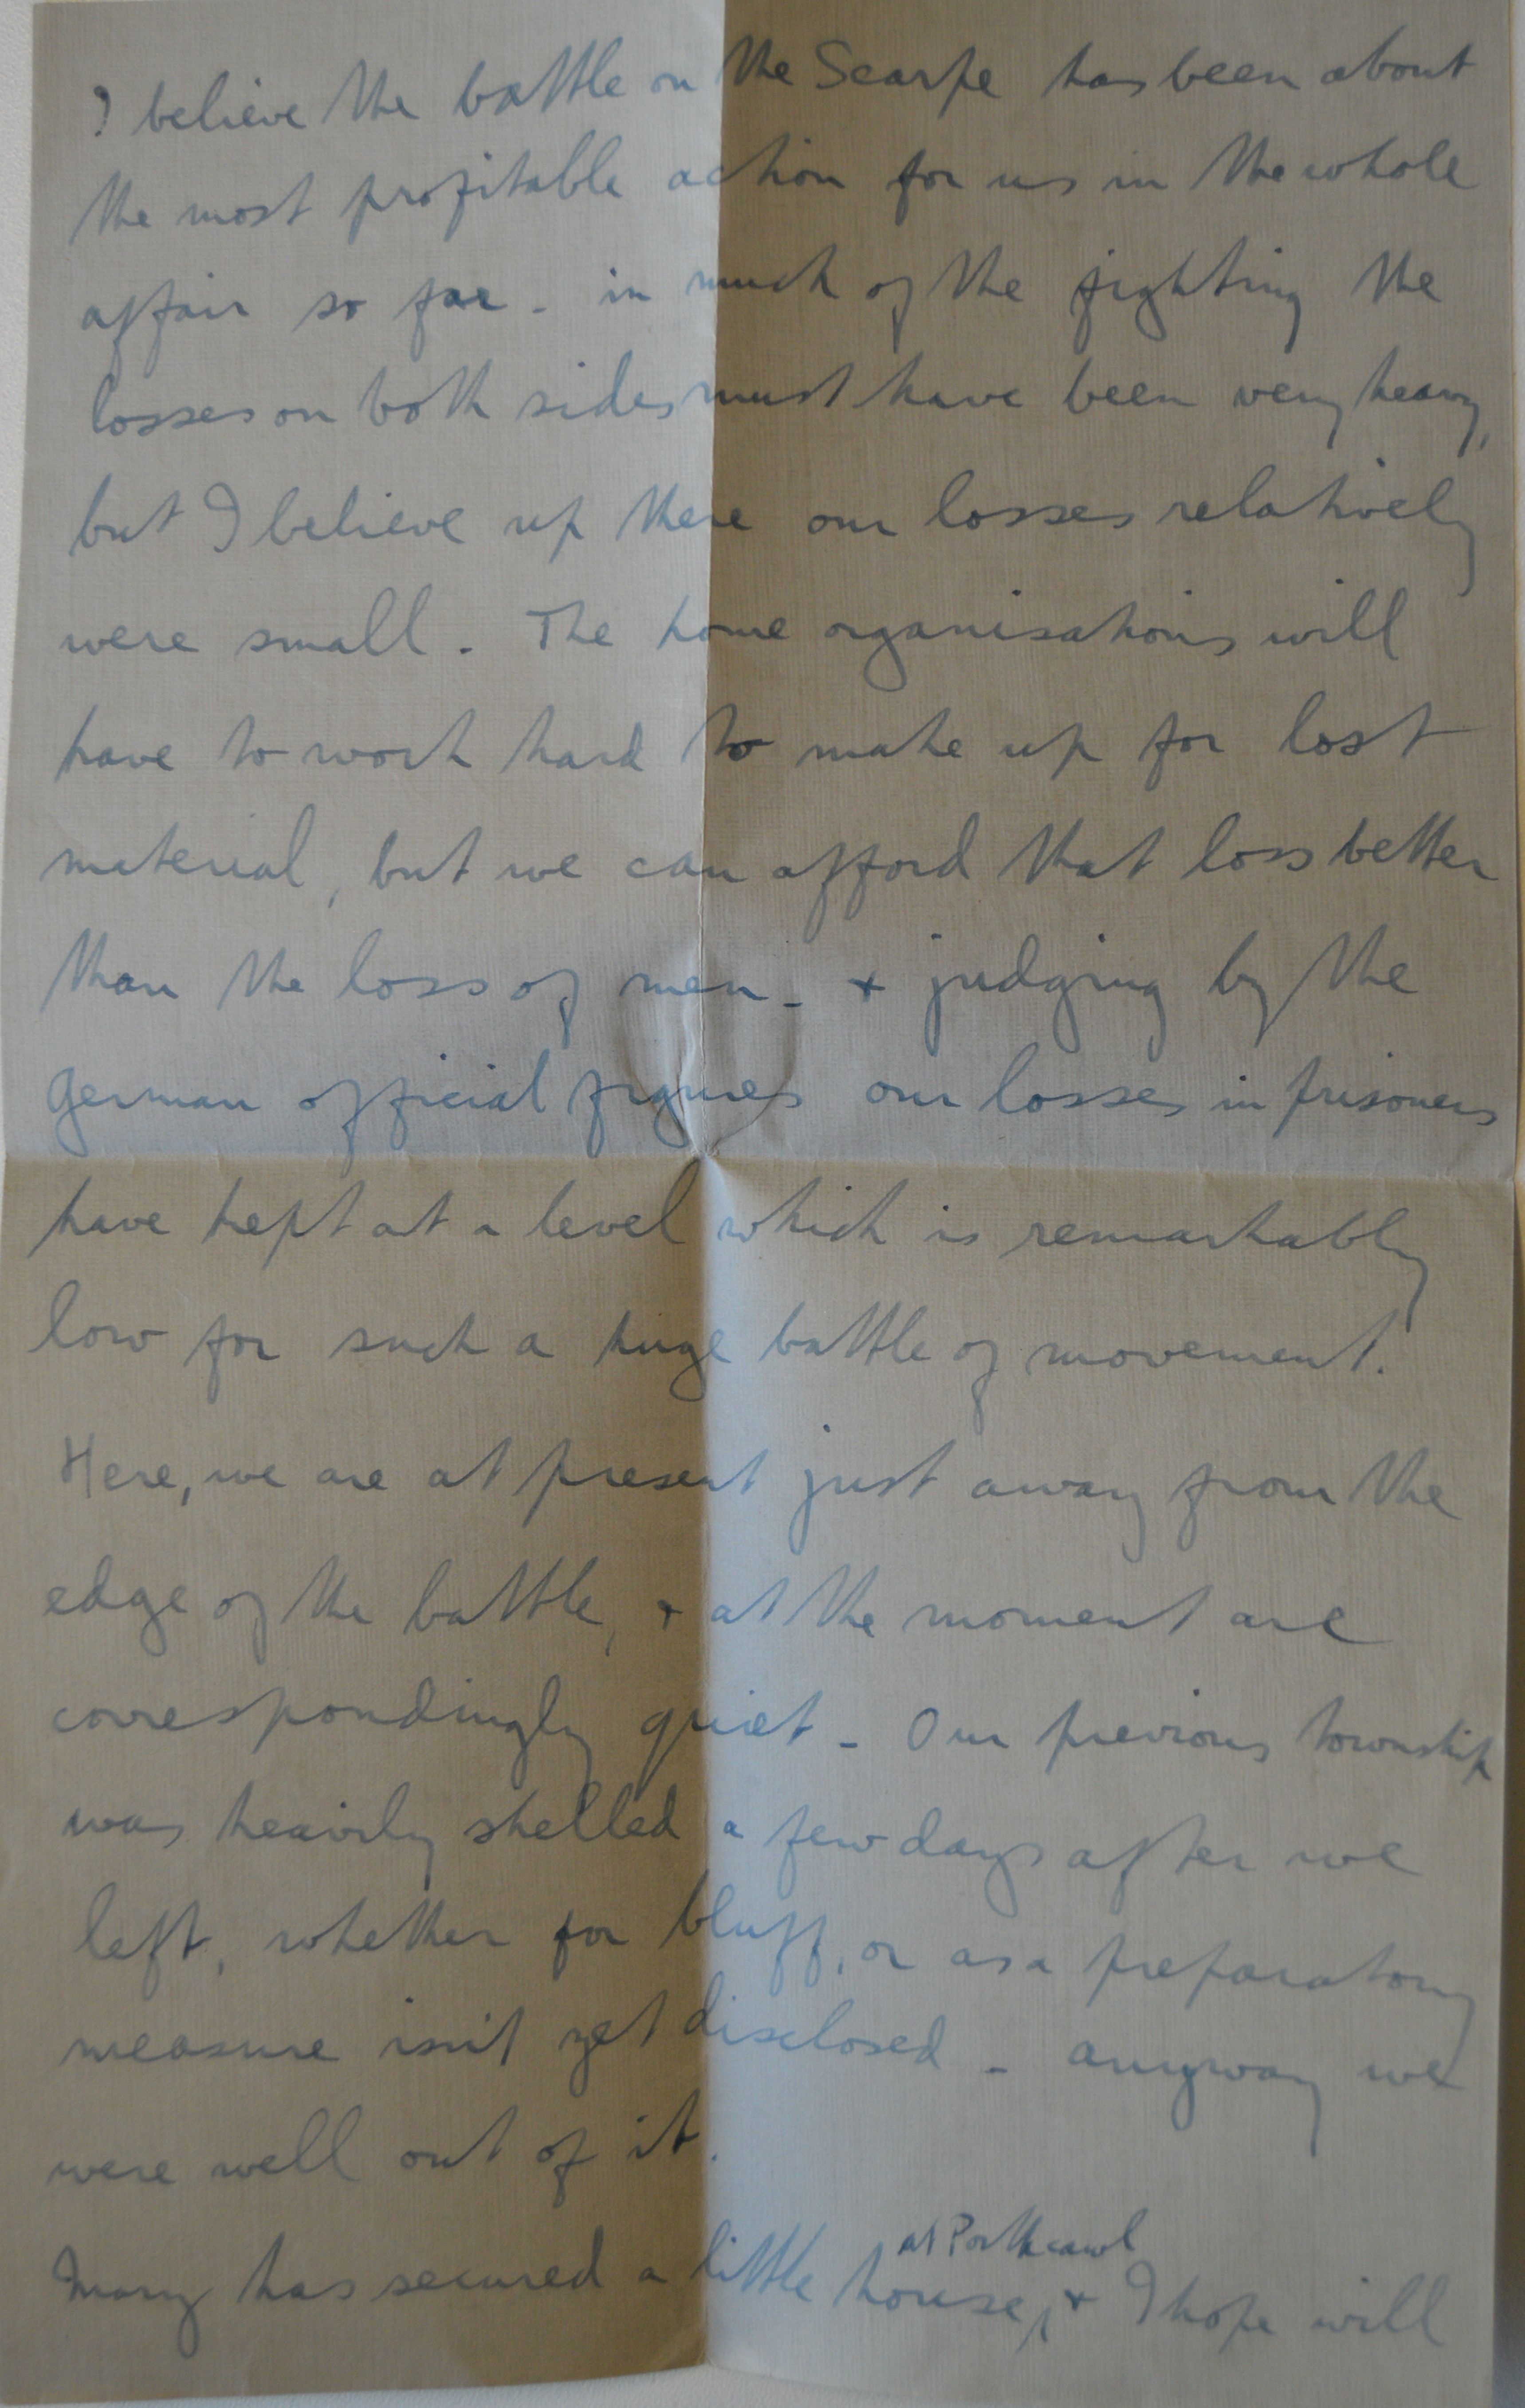 I believe the battle on the Scarpe has been about
the most profitable action for us in the whole
affair so far - in much of the fighting the
losses on both sides must have been very heavy,
but I believe up there our losses relatively
were small. The home organisations will
have to work hard to make up for lost
material, but we can afford that loss better
than the loss of men - + judging by the
german official figures our losses in prisoners
have kept at a level which is remarkably
low for such a huge battle of movement.
Here, we are at present just away from the
edge of the battle, + at the moment are
correspondingly quiet - Our previous township
was heavily shelled a few days after we
left, whether for bluff, or as a preparatory
measure isn't yet disclosed - anyway we
were well out of it.
at Porthcawl
Mary has secured a little house, + I hope will